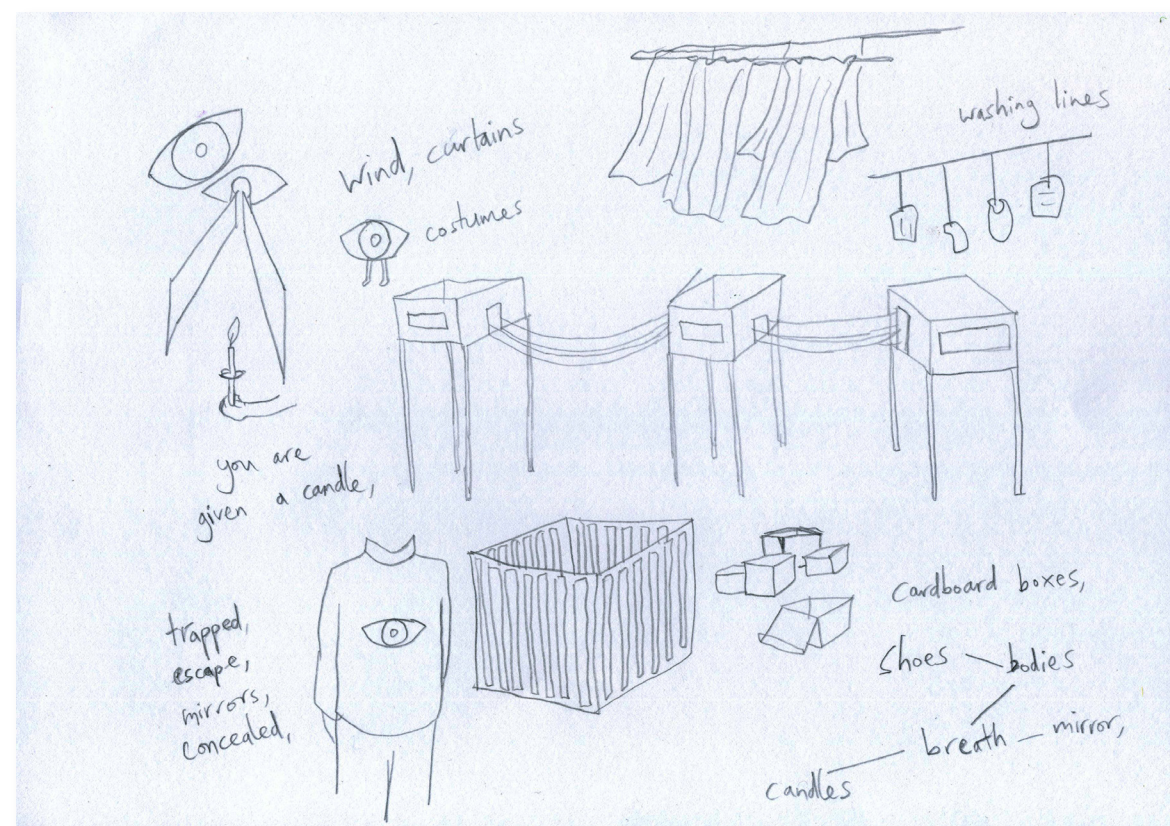 washing lines
Wind, curtains
costumes
you are
given a candle,
trapped,
escape,
mirrors,
concealed,
cardboard boxes,
shoes bodies
breath mirror,
candles